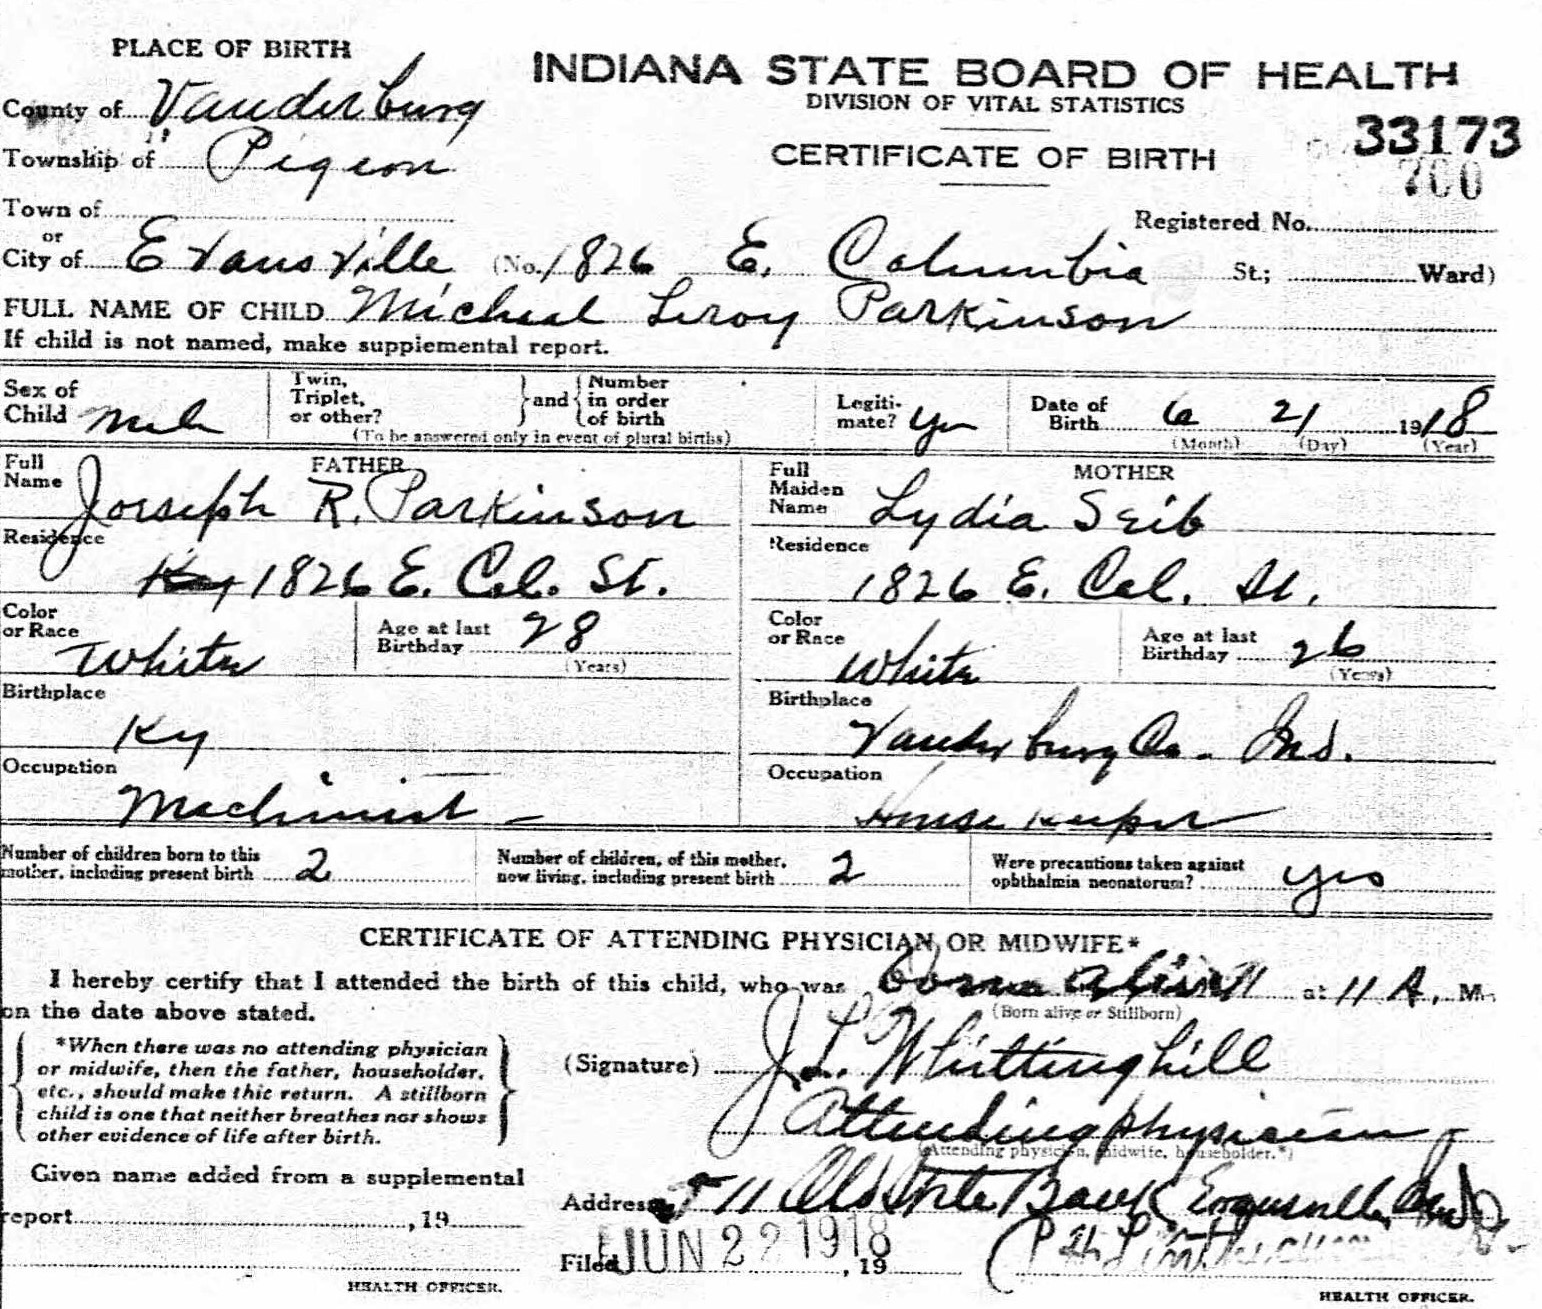 PLACE OF BIRTH
INDIANA STATE BOARD OF HEALTH
County of Vanderburg
DIVISION OF VITAL STATISTICS
33173
Township of Pigeon
CERTIFICATE OF BIRTH
700
Town of
or
Registered No.
City of Evansville (No. 1826 E. Columbia St.; Ward)
FULL NAME OF CHILD Micheal Leroy Parkinson
If child is not named, make supplemental report.
Sex of Child Male
Twin, Triplet, or other? and Number in order of birth
(To be answered only in event of plural births)
Legiti- mate? Yes
Date of Birth 6 21 1918
(Month) (Day) (Year)
FATHER
Full Name Jorseph R. Parkinson
MOTHER
Full Maiden Name Lydia Seib
Residence
1826 E. Col. St.
Residence
1826 E. Col. St.
Color or Race White
Age at last Birthday 28
(Years)
Color or Race White
Age at last Birthday 26
(Years)
Birthplace
Ky
Birthplace
Vanderburg Co. Ind.
Occupation
Machinist
Occupation
House keeper
Number of children born to this mother, including present birth 2
Number of children, of this mother, now living, including present birth 2
Were precautions taken against ophthalmia neonatorum? yes
CERTIFICATE OF ATTENDING PHYSICIAN OR MIDWIFE*
I hereby certify that I attended the birth of this child, who was Born alive at 11 A. M.
on the date above stated.
(Born alive or Stillborn)
*When there was no attending physician
or midwife, then the father, householder,
etc., should make this return. A stillborn
child is one that neither breathes nor shows
other evidence of life after birth.
(Signature) J. L. Whittinghill
Attending physician
(Attending physician, midwife, householder.*)
Given name added from a supplemental
report , 19
HEALTH OFFICER.
Address 711 Old State Bank Evansville, Ind
Filed JUN 22 1918 , 19
HEALTH OFFICER.